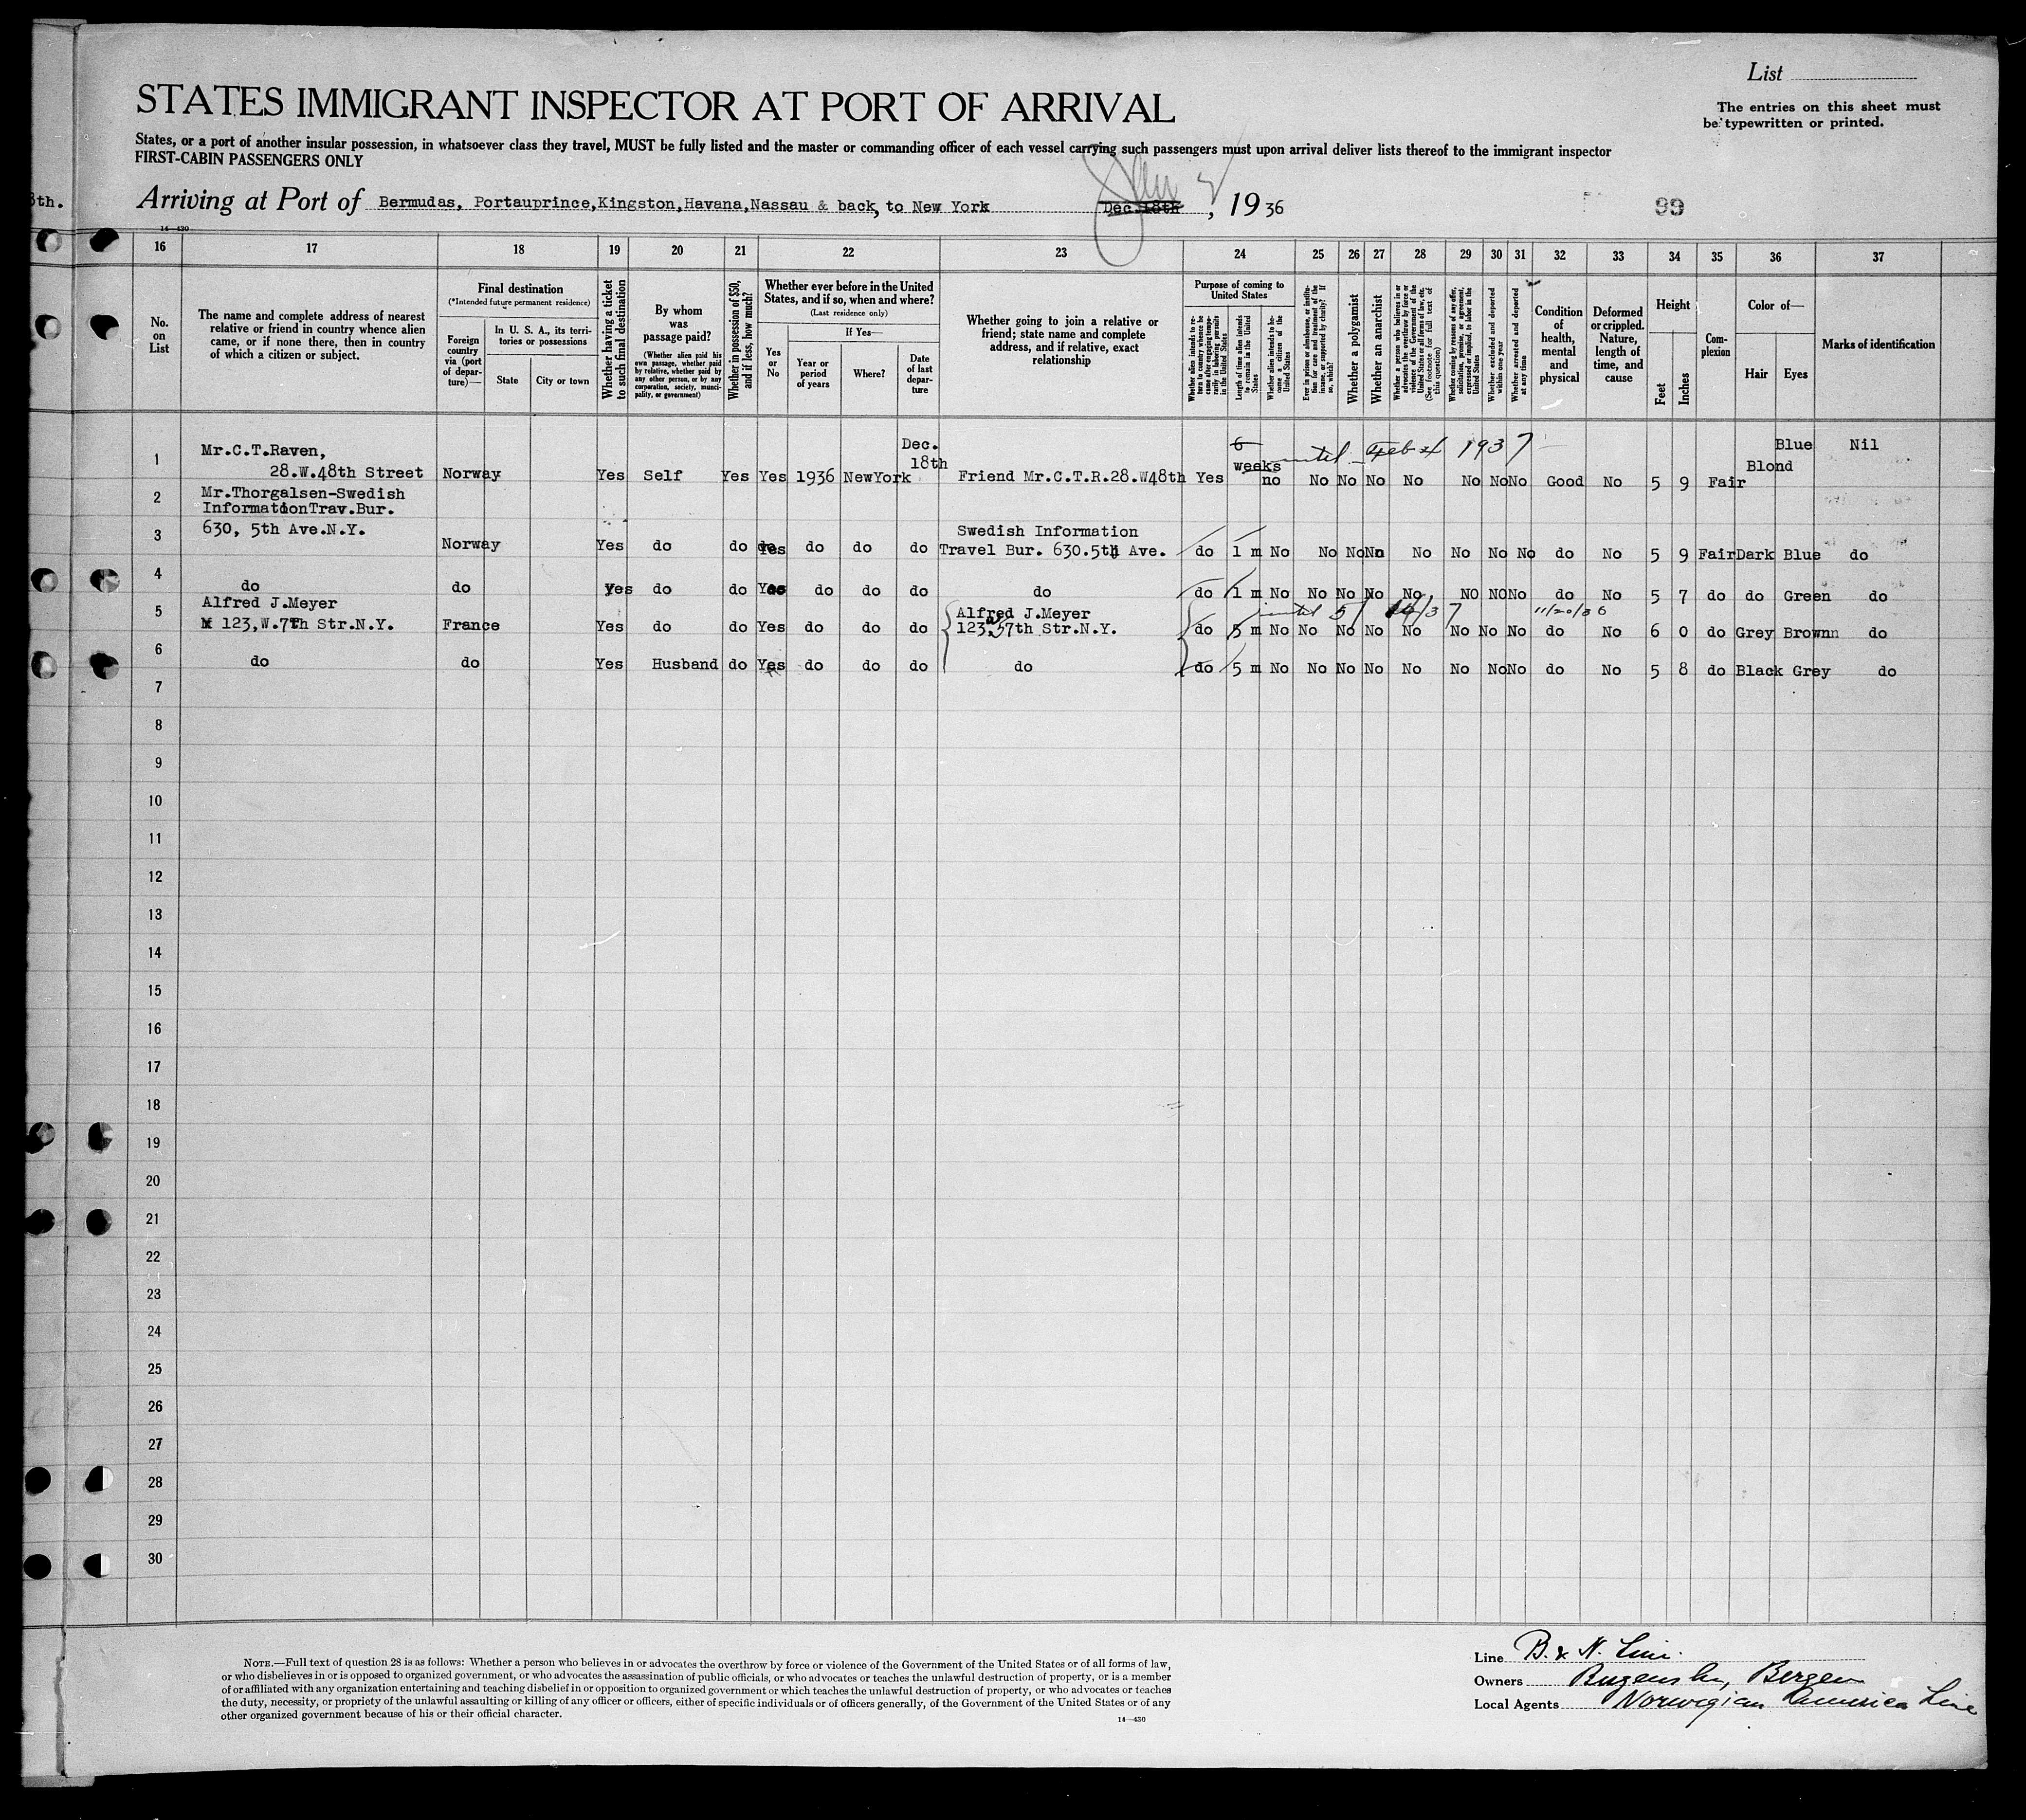 List
STATES IMMIGRANT INSPECTOR AT PORT OF ARRIVAL
The entries on this sheet must
be typewritten or printed.
States, or a port of another insular possession, in whatsoever class they travel, MUST be fully listed and the master or commanding officer of each vessel carrying such passengers must upon arrival deliver lists thereof to the immigrant inspector
FIRST-CABIN PASSENGERS ONLY
Arriving at Port of Bermudas, Portauprince,Kingston,Havana,Nassau & back, to New York Dec.18th Jan 2, 1936
99
14—430
16 17 18 19 20 21 22 23 24 25 26 27 28 29 30 31 32 33 34 35 36 37
No.
on
List
The name and complete address of nearest
relative or friend in country whence alien
came, or if none there, then in country
of which a citizen or subject.
Final destination
(*Intended future permanent residence)
Foreign
country
via (port
of depar-
ture)—
In U. S. A., its terri-
tories or possessions
State City or town
Whether having a ticket
to such final destination
By whom
was
passage paid?
(Whether alien paid his
own passage, whether paid
by relative, whether paid by
any other person, or by any
corporation, society, munici-
pality, or government)
Whether in possession of $50,
and if less, how much?
Whether ever before in the United
States, and if so, when and where?
(Last residence only)
Yes
or
No
If Yes—
Year or
period
of years
Where?
Date
of last
depar-
ture
Whether going to join a relative or
friend; state name and complete
address, and if relative, exact
relationship
Purpose of coming to
United States
Whether alien intends to re-
turn to country whence he
came after engaging tempo-
rarily in laboring pursuits
in the United States
Length of time alien intends
to remain in the United
States
Whether alien intends to be-
come a citizen of the
United States
Ever in prison or almshouse, or institu-
tion for care and treatment of the
insane, or supported by charity? If
so, which?
Whether a polygamist
Whether an anarchist
Whether a person who believes in or
advocates the overthrow by force or
violence of the Government of the
United States or all forms of law, etc.
(See footnote for full text of
this question)
Whether coming by reasons of any offer,
solicitation, promise, or agreement,
expressed or implied, to labor in the
United States
Whether excluded and deported
within one year
Whether arrested and deported
at any time
Condition
of
health,
mental
and
physical
Deformed
or crippled.
Nature,
length of
time, and
cause
Height
Feet Inches
Com-
plexion
Color of—
Hair Eyes
Marks of identification
1 Mr.C.T.Raven, Dec. 6 until Feb 4 1937 Blue Nil
28.W.48th Street Norway Yes Self Yes Yes 1936 NewYork 18th Friend Mr.C.T.R.28.W48th Yes weeks no No No No No No No No Good No 5 9 Fair Blond
2 Mr.Thorgalsen-Swedish
InformationTrav.Bur.
3 630, 5th Ave.N.Y. Swedish Information
Norway Yes do do Yes do do do Travel Bur. 630.5th Ave. do 1 m No No No No No No No No do No 5 9 Fair Dark Blue do
4 do do Yes do do Yes do do do do do 1 m No No No No No NO NO No do No 5 7 do do Green do
5 Alfred J.Meyer Alfred J.Meyer until 5/14/37 11/20/36
123,W.7Th Str.N.Y. France Yes do do Yes do do do 123, W 57th Str.N.Y. do 5 m No No No No No No No No do No 6 0 do Grey Brownn do
6 do do Yes Husband do Yes do do do do do 5 m No No No No No No No No do No 5 8 do Black Grey do
7
8
9
10
11
12
13
14
15
16
17
18
19
20
21
22
23
24
25
26
27
28
29
30
NOTE.—Full text of question 28 is as follows: Whether a person who believes in or advocates the overthrow by force or violence of the Government of the United States or of all forms of law,
or who disbelieves in or is opposed to organized government, or who advocates the assassination of public officials, or who advocates or teaches the unlawful destruction of property, or is a member
of or affiliated with any organization entertaining and teaching disbelief in or opposition to organized government or which teaches the unlawful destruction of property, or who advocates or teaches
the duty, necessity, or propriety of the unlawful assaulting or killing of any officer or officers, either of specific individuals or of officers generally, of the Government of the United States or of any
other organized government because of his or their official character.
14—430
Line B. & N. Line.
Owners Bergen
Local Agents Norwegian America Line